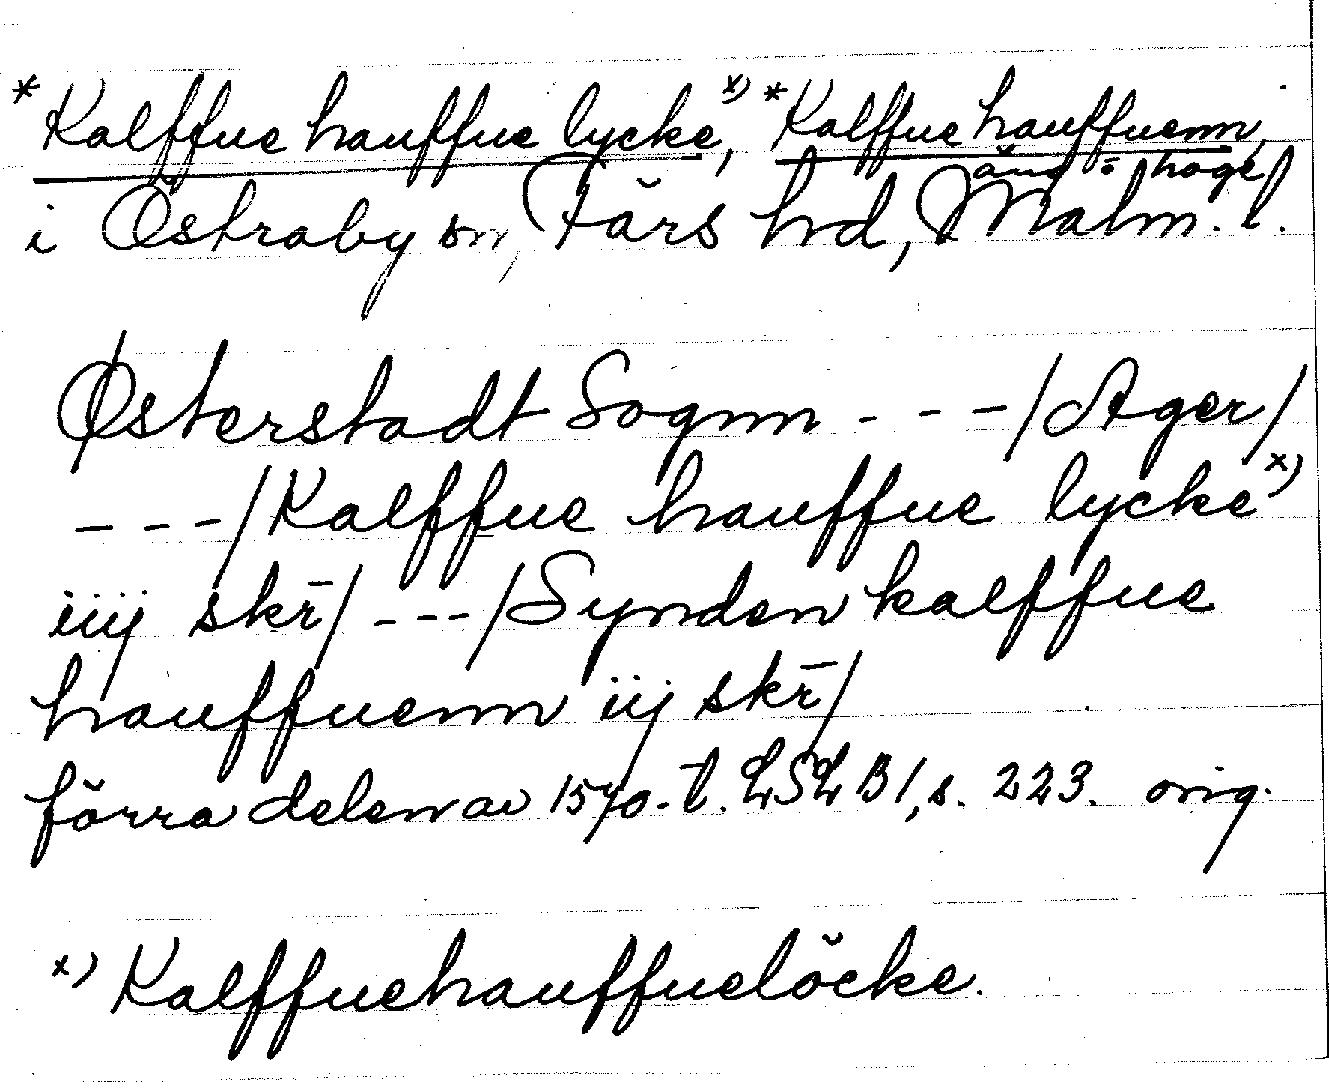 *Kalffue hauffue lycke, x) *Kalffue hauffuenn,
äng o hage
i Östraby sn, Färs hd, Malm. l.
Østerstadt Sognn - - - / Ager /
- - - / Kalffue hauffue lycke x)
iiij skr̄ / - - - / Synden kalffue
hauffuenn iij skr̄ /
förra delen av 1570-t. LSL B 1, s. 223. orig.
x) Kalffuehauffueløcke.